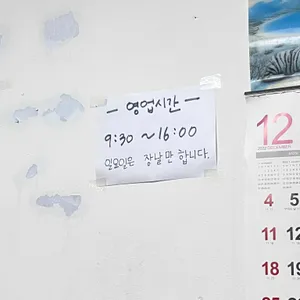 - 영업시간 -
9:30 ~ 16:00
일요일은 장날만 합니다.
12
4 5
11 12
18 19